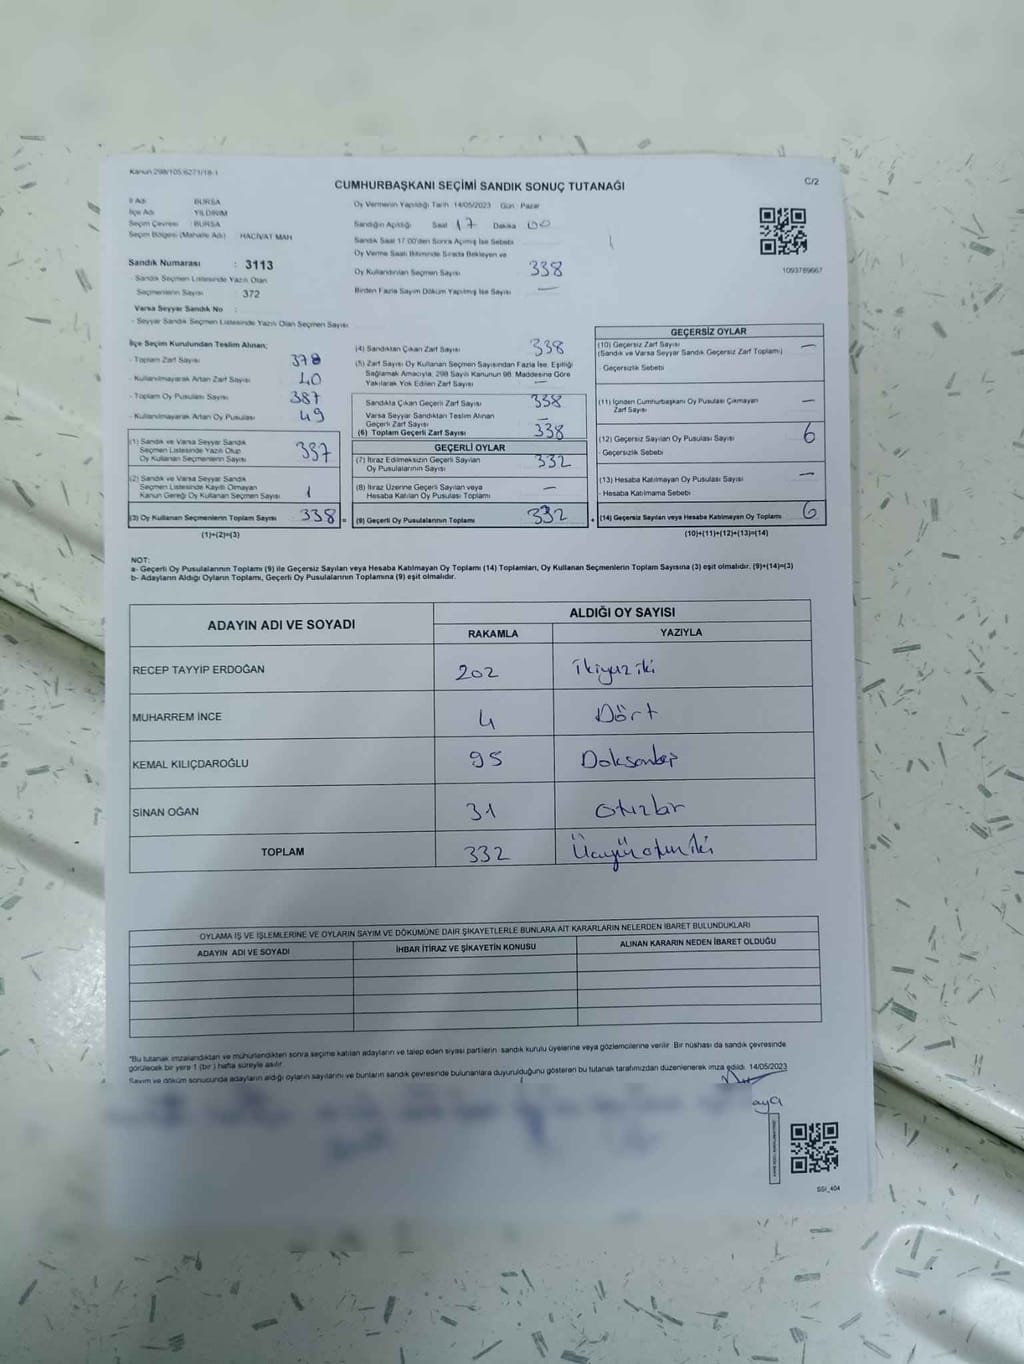 Kanun 298/105.6271/18-1
CUMHURBAŞKANI SEÇİMİ SANDIK SONUÇ TUTANAĞI
C/2
İl Adı BURSA
İlçe Adı YILDIRIM
Seçim Çevresi BURSA
Seçim Bölgesi (Mahalle Adı) HACİVAT MAH
Sandık Numarası : 3113
Sandık Seçmen Listesinde Yazılı Olan
Seçmenlerin Sayısı 372
Varsa Seyyar Sandık No
- Seyyar Sandık Seçmen Listesinde Yazılı Olan Seçmen Sayısı
Oy Vermenin Yapıldığı Tarih 14/05/2023 Gün Pazar
Sandığın Açıldığı Saat 17 Dakika 00
Sandık Saat 17.00'den Sonra Açılmış İse Sebebi
Oy Verme Saati Bitiminde Sırada Bekleyen ve
Oy Kullandırılan Seçmen Sayısı 338
Birden Fazla Sayım Döküm Yapılmış İse Sayısı —
1093789667
İlçe Seçim Kurulundan Teslim Alınan;
- Toplam Zarf Sayısı 378
- Kullanılmayarak Artan Zarf Sayısı 40
- Toplam Oy Pusulası Sayısı 387
- Kullanılmayarak Artan Oy Pusulası 49
(1) Sandık ve Varsa Seyyar Sandık
Seçmen Listesinde Yazılı Olup
Oy Kullanan Seçmenlerin Sayısı 337
(2) Sandık ve Varsa Seyyar Sandık
Seçmen Listesinde Kaydı Olmayan
Kanun Gereği Oy Kullanan Seçmen Sayısı 1
(3) Oy Kullanan Seçmenlerin Toplam Sayısı 338 =
(1)+(2)=(3)
(4) Sandıktan Çıkan Zarf Sayısı 338
(5) Zarf Sayısı Oy Kullanan Seçmen Sayısından Fazla İse, Eşitliği
Sağlamak Amacıyla, 298 Sayılı Kanunun 98. Maddesine Göre
Yakılarak Yok Edilen Zarf Sayısı —
Sandıkta Çıkan Geçerli Zarf Sayısı 338
Varsa Seyyar Sandıktan Teslim Alınan
Geçerli Zarf Sayısı —
(6) Toplam Geçerli Zarf Sayısı 338
GEÇERLİ OYLAR
(7) İtiraz Edilmeksizin Geçerli Sayılan
Oy Pusulalarının Sayısı 332
(8) İtiraz Üzerine Geçerli Sayılan veya
Hesaba Katılan Oy Pusulası Toplamı —
(9) Geçerli Oy Pusulalarının Toplamı 332 +
GEÇERSİZ OYLAR
(10) Geçersiz Zarf Sayısı —
(Sandık ve Varsa Seyyar Sandık Geçersiz Zarf Toplamı)
- Geçersizlik Sebebi
(11) İçinden Cumhurbaşkanı Oy Pusulası Çıkmayan
Zarf Sayısı —
(12) Geçersiz Sayılan Oy Pusulası Sayısı 6
- Geçersizlik Sebebi
(13) Hesaba Katılmayan Oy Pusulası Sayısı —
- Hesaba Katılmama Sebebi
(14) Geçersiz Sayılan veya Hesaba Katılmayan Oy Toplamı 6
(10)+(11)+(12)+(13)=(14)
NOT:
a- Geçerli Oy Pusulalarının Toplamı (9) ile Geçersiz Sayılan veya Hesaba Katılmayan Oy Toplamı (14) Toplamları, Oy Kullanan Seçmenlerin Toplam Sayısına (3) eşit olmalıdır. (9)+(14)=(3)
b- Adayların Aldığı Oyların Toplamı, Geçerli Oy Pusulalarının Toplamına (9) eşit olmalıdır.
ADAYIN ADI VE SOYADI ALDIĞI OY SAYISI
RAKAMLA YAZIYLA
RECEP TAYYİP ERDOĞAN 202 ikiyüz iki
MUHARREM İNCE 4 Dört
KEMAL KILIÇDAROĞLU 95 Doksanbeş
SİNAN OĞAN 31 otuzbir
TOPLAM 332 Üçyüzotuziki
OYLAMA İŞ VE İŞLEMLERİNE VE OYLARIN SAYIM VE DÖKÜMÜNE DAİR ŞİKAYETLERLE BUNLARA AİT KARARLARIN NELERDEN İBARET BULUNDUKLARI
ADAYIN ADI VE SOYADI İHBAR İTİRAZ VE ŞİKAYETİN KONUSU ALINAN KARARIN NEDEN İBARET OLDUĞU
*Bu tutanak imzalandıktan ve mühürlendikten sonra seçime katılan adayların ve talep eden siyasi partilerin sandık kurulu üyelerine veya gözlemcilerine verilir. Bir nüshası da sandık çevresinde
görülecek bir yere 1 (bir) hafta süreyle asılır.
Sayım ve döküm sonucunda adayların aldığı oyların sayılarını ve bunların sandık çevresinde bulunanlara duyurulduğunu gösteren bu tutanak tarafımızdan düzenlenerek imza edildi. 14/05/2023
SSI_404